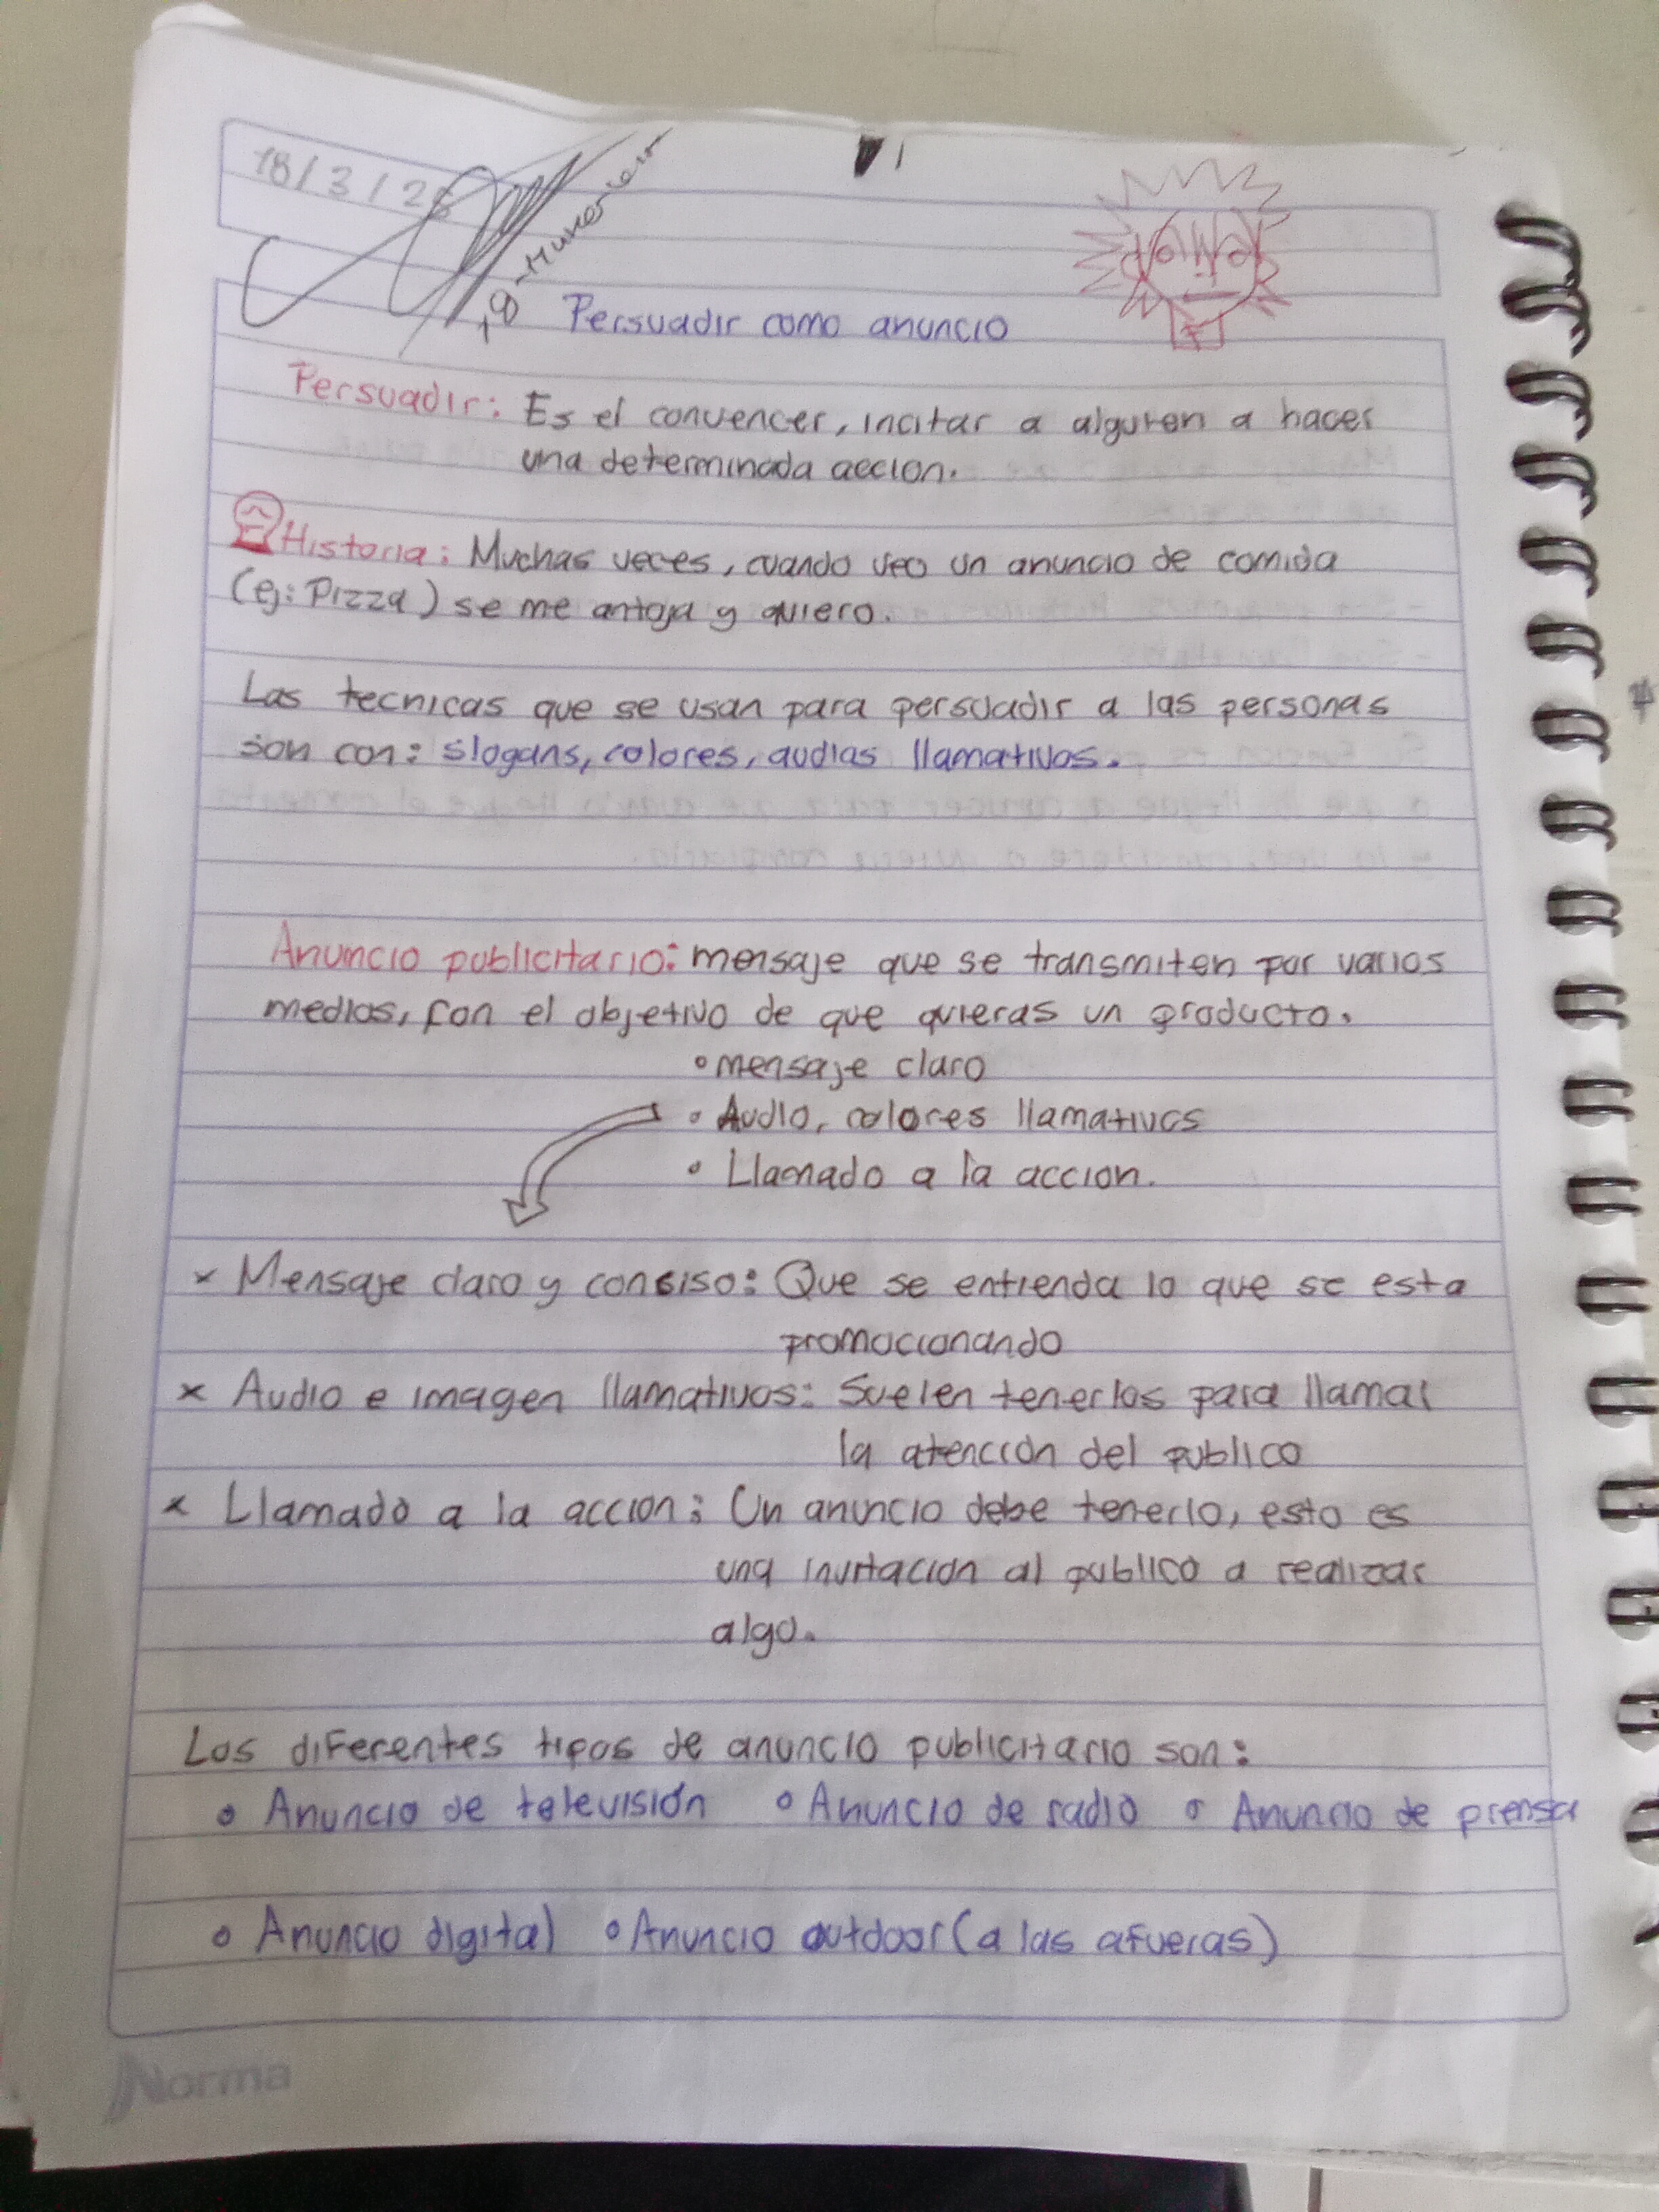 18/3/25
Persuadir como anuncio
Persuadir: Es el convencer, incitar a alguien a hacer
una determinada accion.
Historia: Muchas veces, cuando veo un anuncio de comida
(ej: Pizza) se me antoja y quiero.
Las tecnicas que se usan para persuadir a las personas
son con: slogans, colores, audios llamativos.
Anuncio publicitario: mensaje que se transmiten por varios
medios, con el objetivo de que quieras un producto.
• mensaje claro
• Audio, colores llamativos
• Llamado a la accion.
x Mensaje claro y consiso: Que se entienda lo que se esta
promocionando
x Audio e imagen llamativos: Suelen tenerlos para llamar
la atención del publico
x Llamado a la accion: Un anuncio debe tenerlo, esto es
una invitacion al publico a realizar
algo.
Los diferentes tipos de anuncio publicitario son:
• Anuncio de televisión • Anuncio de radio • Anuncio de prensa
• Anuncio digital • Anuncio outdoor (a las afueras)
Norma